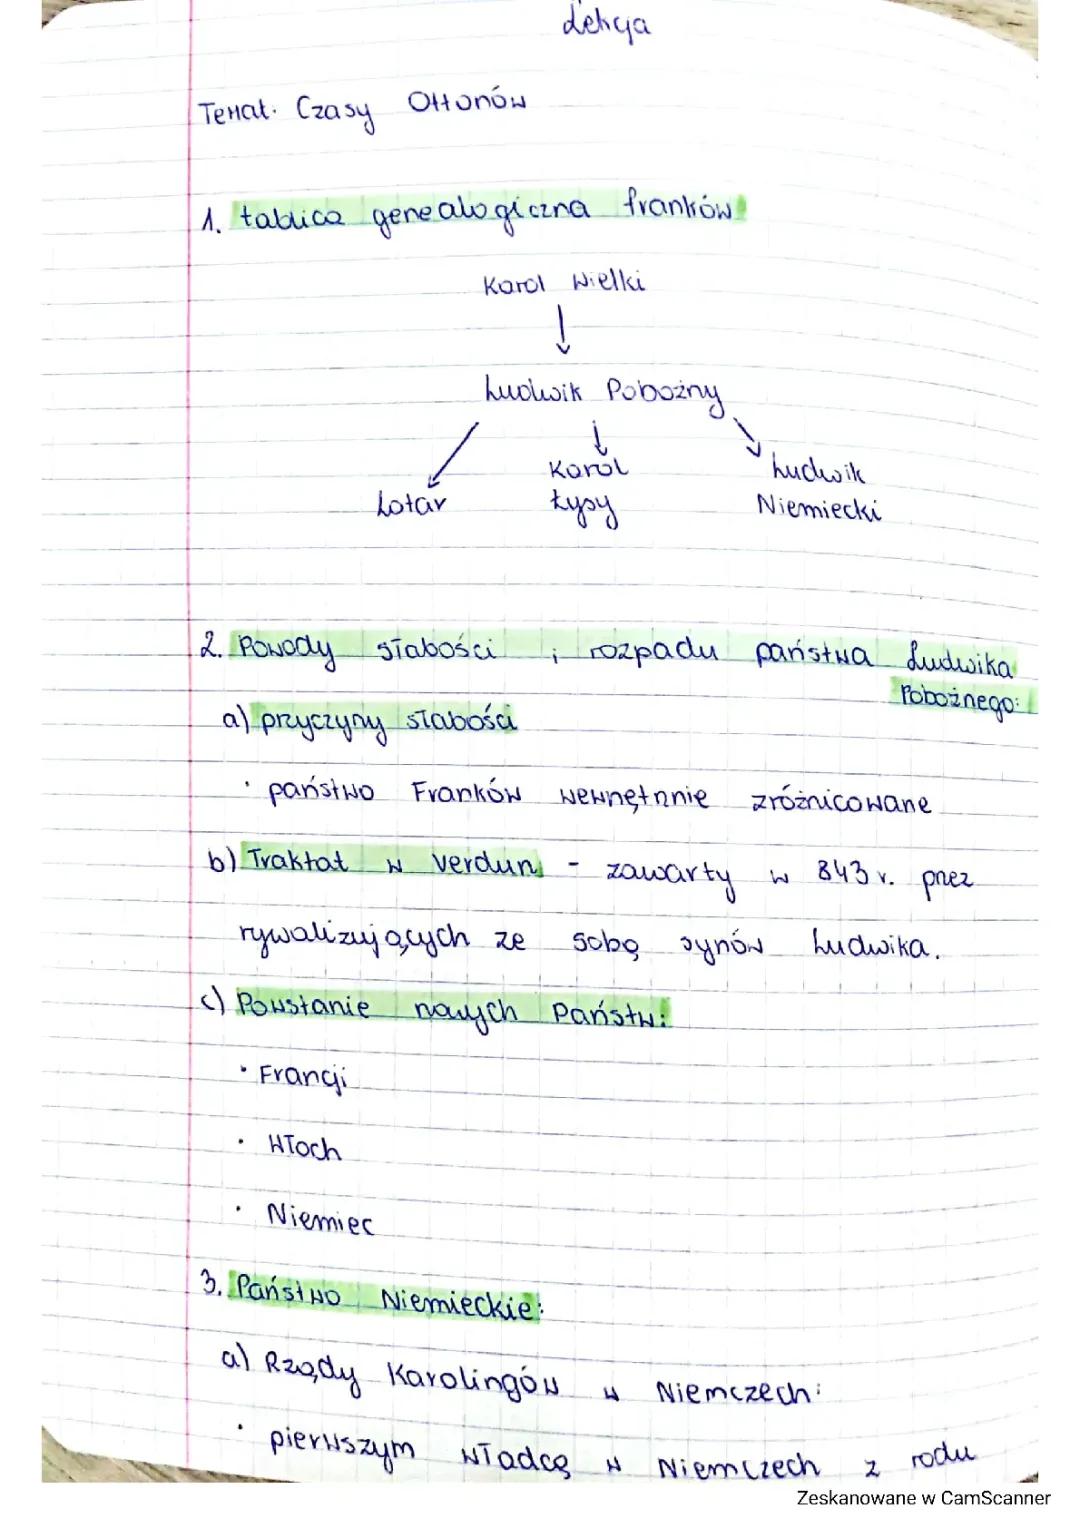 Lekcja
Temat. Czasy Ottonów
1. tablica genealogiczna franków
Karol Wielki
Ludwik Pobożny
Lotar
Karol
Łysy
Ludwik
Niemiecki
2. Powody słabości i rozpadu państwa Ludwika
Pobożnego:
a) przyczyny słabości
· państwo Franków wewnętnnie zróżnicowane
b) Traktat w Verdun - zawarty w 843 r. przez
rywalizujących ze sobą synów Ludwika.
c) Powstanie nowych Państw:
· Francji
· Włoch
· Niemiec
3. Państwo Niemieckie:
a) Rządy Karolingów w Niemczech:
· pierwszym władcą w Niemczech z rodu
Zeskanowane w CamScanner